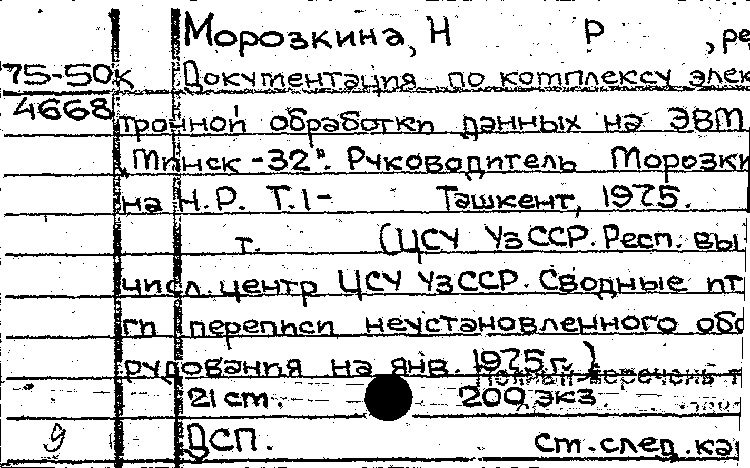 Морозкина, Н Р , ре
75-50к Документация по комплексу элек
4668 тронной обработки данных на ЭВМ
„Минск-32". Руководитель Морозки
на Н.Р. Т.1- Ташкент, 1975.
т. (ЦСУ УзССР. Респ. вы
числ. центр ЦСУ УзССР. Сводные ит
ги переписи неустановленного обо
рудования на янв. 1975г.)
21 cm. 200 экз
9 ДСП. см. след. ка